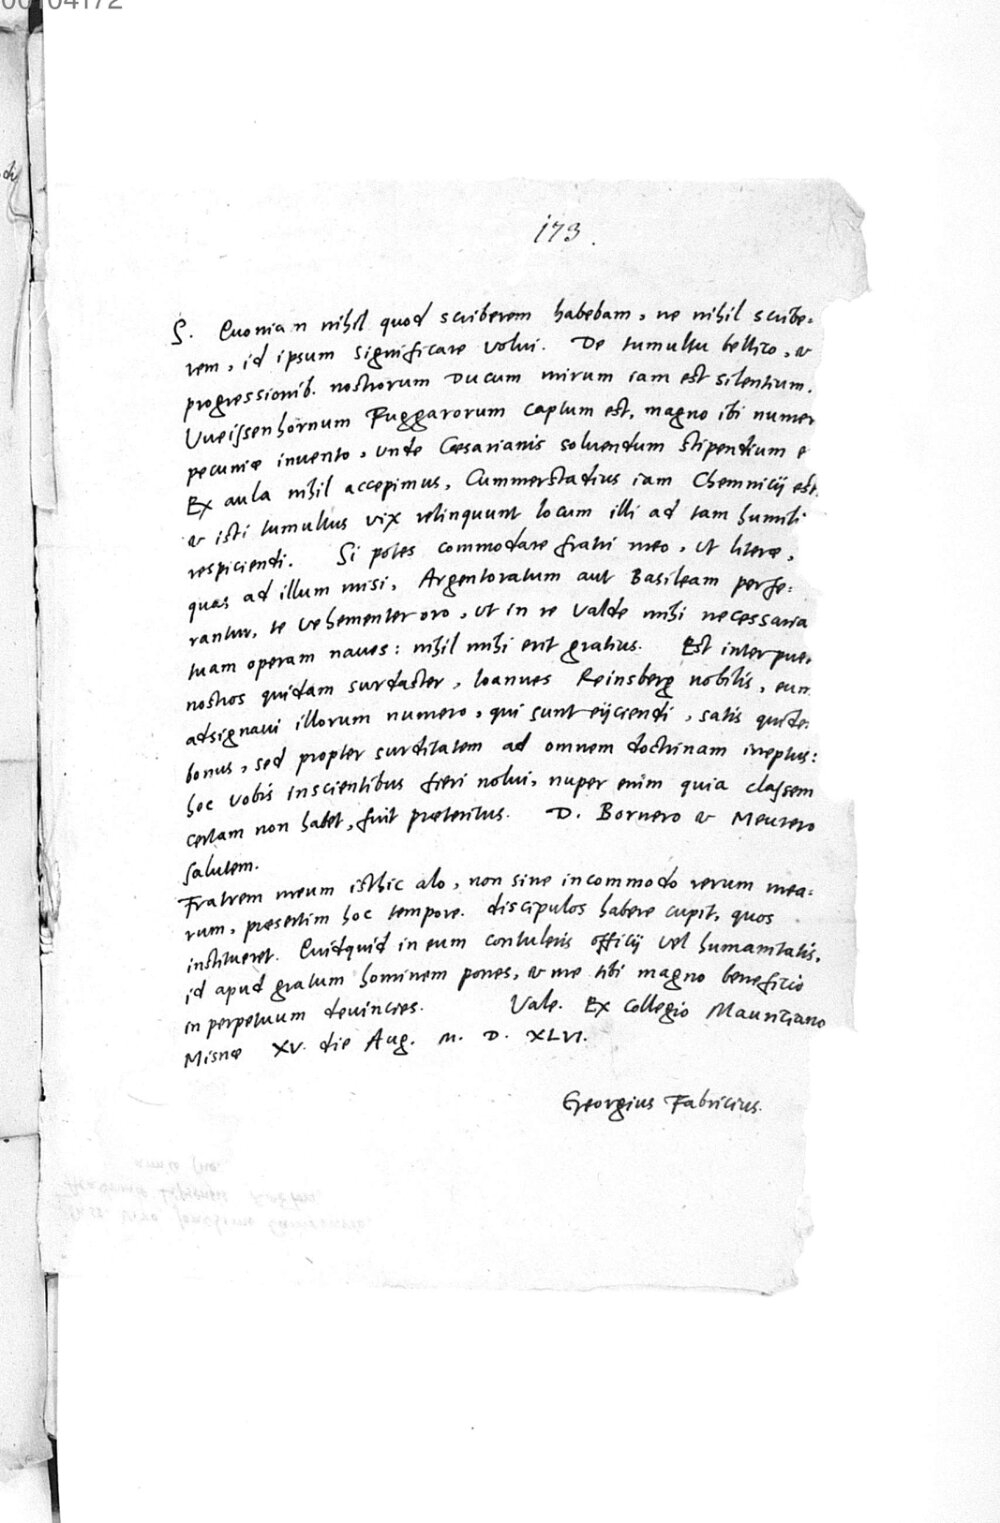 00104172
173.
S. Quoniam nihil quod scriberem habebam, ne nihil scribe-
rem, id ipsum significare volui. De tumultu bellico, &
progressionib. nostrorum Ducum mirum iam est silentium.
Vveissenhornum Fuggarorum captum est, magno ibi numer
pecuniæ invento, unde Cæsarianis soluendum stipendium e
Ex aula nihil accepimus, Cummerstadius iam Chemnicij est
& isti tumultus vix relinquunt locum illi ad tam humili
respiciendi. Si potes commodare fratri meo, ut literæ,
quas ad illum misi, Argentoratum aut Basileam perfe-
rantur, te vehementer oro, ut in re valde mihi necessaria
tuam operam naues: nihil mihi erit gratius. Est inter pue-
nostros quidam surdaster, Ioannes Reinsberg nobilis, eum
adsignaui illorum numero, qui sunt eijciendi, satis quide-
bonus, sed propter surditatem ad omnem doctrinam ineptus:
hoc vobis inscientibus fieri nolui, nuper enim quia classem
certam non habet, fuit præteritus. D. Bornero & Meurero
salutem.
Fratrem meum isthic alo, non sine incommodo rerum mea-
rum, præsertim hoc tempore. discipulos habere cupit, quos
institueret. Quidquid in eum contuleris officij vel humanitatis,
id apud gratum hominem pones, & me tibi magno beneficio
in perpetuum deuincies. Vale. Ex Collegio Mauriciano
Misnæ XV. die Aug. M. D. XLVI.
Georgius Fabricius.